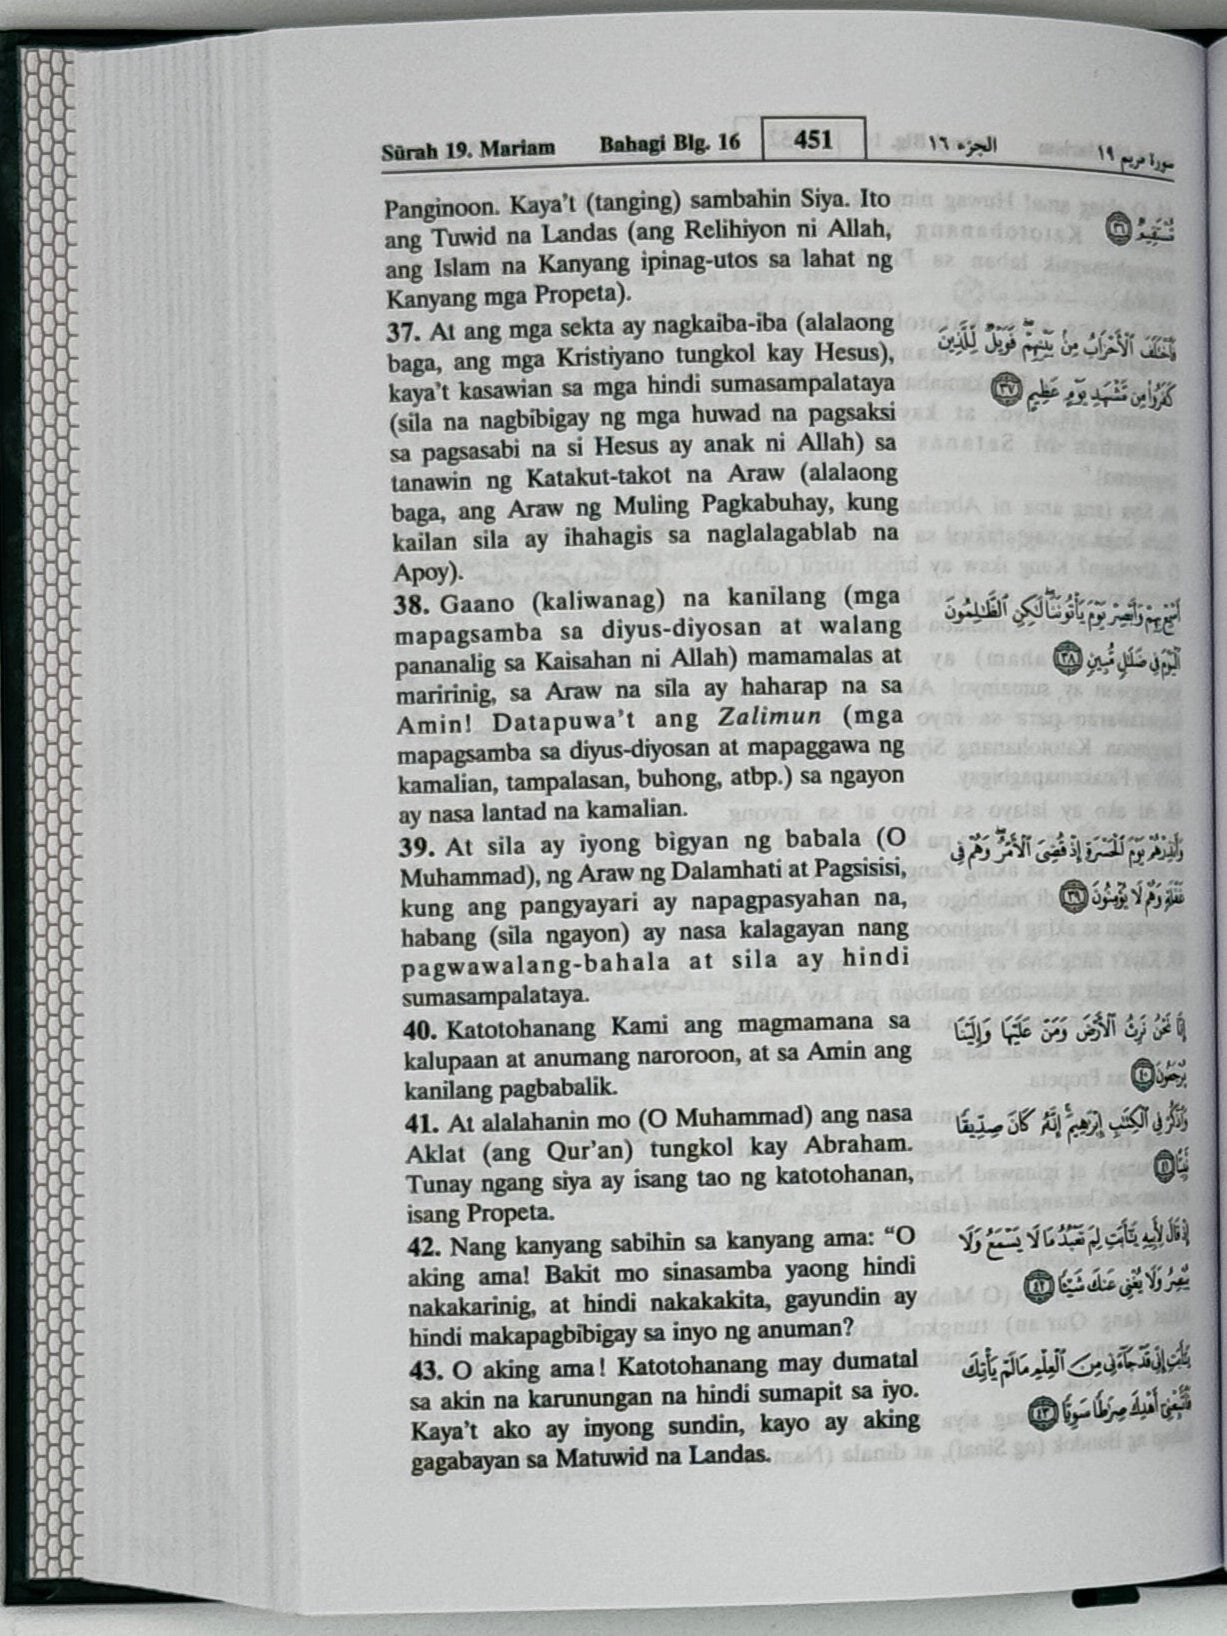 Sūrah 19. Mariam Bahagi Blg. 16 451 الجزء ١٦ سورة مريم ١٩
Panginoon. Kaya't (tanging) sambahin Siya. Ito
ang Tuwid na Landas (ang Relihiyon ni Allah,
ang Islam na Kanyang ipinag-utos sa lahat ng
Kanyang mga Propeta).
37. At ang mga sekta ay nagkaiba-iba (alalaong
baga, ang mga Kristiyano tungkol kay Hesus),
kaya't kasawian sa mga hindi sumasampalataya
(sila na nagbibigay ng mga huwad na pagsaksi
sa pagsasabi na si Hesus ay anak ni Allah) sa
tanawin ng Katakut-takot na Araw (alalaong
baga, ang Araw ng Muling Pagkabuhay, kung
kailan sila ay ihahagis sa naglalagablab na
Apoy).
38. Gaano (kaliwanag) na kanilang (mga
mapagsamba sa diyus-diyosan at walang
pananalig sa Kaisahan ni Allah) mamamalas at
maririnig, sa Araw na sila ay haharap na sa
Amin! Datapuwa't ang Zalimun (mga
mapagsamba sa diyus-diyosan at mapaggawa ng
kamalian, tampalasan, buhong, atbp.) sa ngayon
ay nasa lantad na kamalian.
39. At sila ay iyong bigyan ng babala (O
Muhammad), ng Araw ng Dalamhati at Pagsisisi,
kung ang pangyayari ay napagpasyahan na,
habang (sila ngayon) ay nasa kalagayan nang
pagwawalang-bahala at sila ay hindi
sumasampalataya.
40. Katotohanang Kami ang magmamana sa
kalupaan at anumang naroroon, at sa Amin ang
kanilang pagbabalik.
41. At alalahanin mo (O Muhammad) ang nasa
Aklat (ang Qur'an) tungkol kay Abraham.
Tunay ngang siya ay isang tao ng katotohanan,
isang Propeta.
42. Nang kanyang sabihin sa kanyang ama: “O
aking ama! Bakit mo sinasamba yaong hindi
nakakarinig, at hindi nakakakita, gayundin ay
hindi makapagbibigay sa inyo ng anuman?
43. O aking ama! Katotohanang may dumatal
sa akin na karunungan na hindi sumapit sa iyo.
Kaya't ako ay inyong sundin, kayo ay aking
gagabayan sa Matuwid na Landas.
مُّسْتَقِيمٌ ٣٦
فَٱخْتَلَفَ ٱلْأَحْزَابُ مِنۢ بَيْنِهِمْ ۖ فَوَيْلٌ لِّلَّذِينَ
كَفَرُوا۟ مِن مَّشْهَدِ يَوْمٍ عَظِيمٍ ٣٧
أَسْمِعْ بِهِمْ وَأَبْصِرْ يَوْمَ يَأْتُونَنَا ۖ لَٰكِنِ ٱلظَّٰلِمُونَ
ٱلْيَوْمَ فِى ضَلَٰلٍ مُّبِينٍ ٣٨
وَأَنذِرْهُمْ يَوْمَ ٱلْحَسْرَةِ إِذْ قُضِىَ ٱلْأَمْرُ وَهُمْ فِى
غَفْلَةٍ وَهُمْ لَا يُؤْمِنُونَ ٣٩
إِنَّا نَحْنُ نَرِثُ ٱلْأَرْضَ وَمَنْ عَلَيْهَا وَإِلَيْنَا
يُرْجَعُونَ ٤٠
وَٱذْكُرْ فِى ٱلْكِتَٰبِ إِبْرَٰهِيمَ ۚ إِنَّهُۥ كَانَ صِدِّيقًا
نَّبِيًّا ٤١
إِذْ قَالَ لِأَبِيهِ يَٰٓأَبَتِ لِمَ تَعْبُدُ مَا لَا يَسْمَعُ وَلَا
يُبْصِرُ وَلَا يُغْنِى عَنكَ شَيْـًٔا ٤٢
يَٰٓأَبَتِ إِنِّى قَدْ جَآءَنِى مِنَ ٱلْعِلْمِ مَا لَمْ يَأْتِكَ
فَٱتَّبِعْنِىٓ أَهْدِكَ صِرَٰطًا سَوِيًّا ٤٣